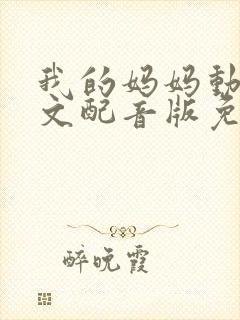 我的妈妈動
文配音版免
醉晚霞